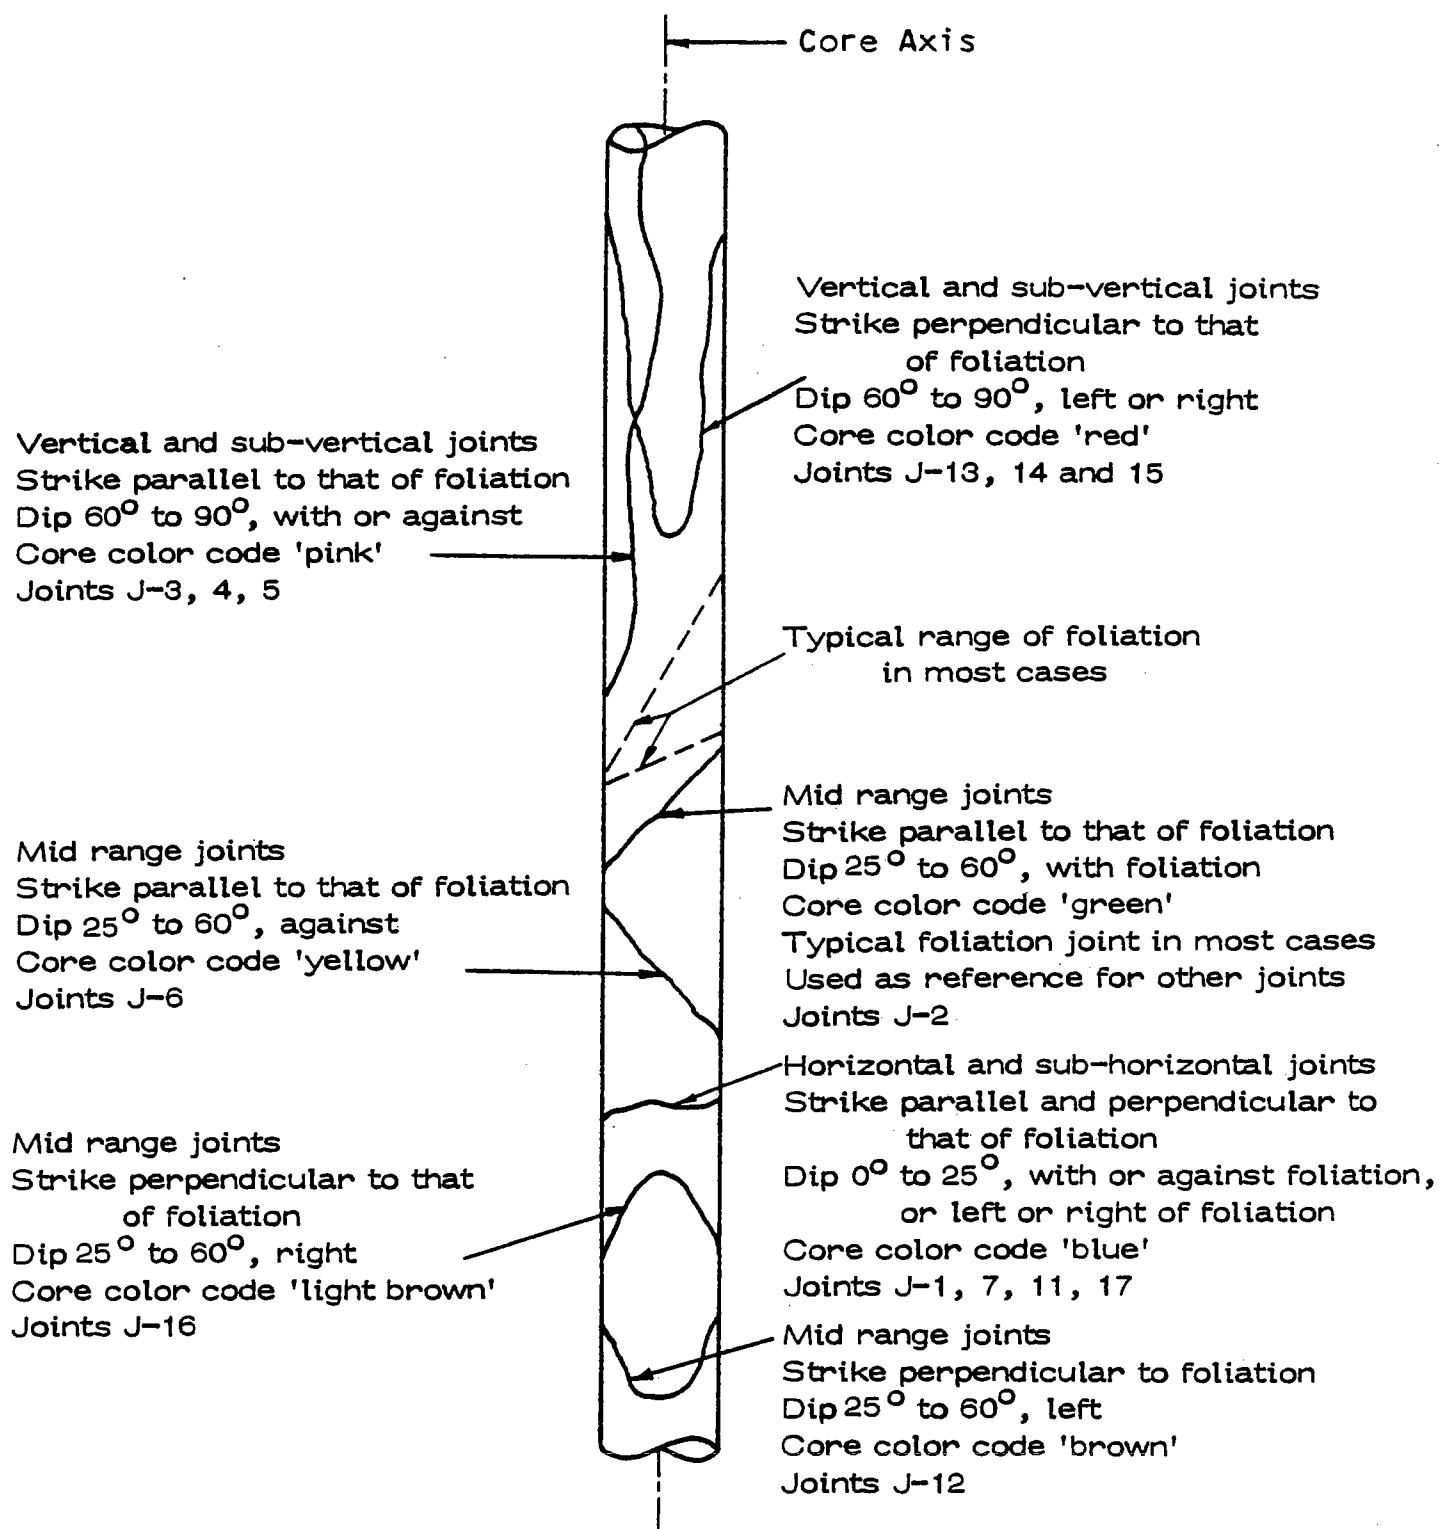 Core Axis
Vertical and sub-vertical joints
Strike perpendicular to that
of foliation
Dip 60° to 90°, left or right
Core color code 'red'
Joints J-13, 14 and 15
Vertical and sub-vertical joints
Strike parallel to that of foliation
Dip 60° to 90°, with or against
Core color code 'pink'
Joints J-3, 4, 5
Typical range of foliation
in most cases
Mid range joints
Strike parallel to that of foliation
Dip 25° to 60°, with foliation
Core color code 'green'
Typical foliation joint in most cases
Used as reference for other joints
Joints J-2
Mid range joints
Strike parallel to that of foliation
Dip 25° to 60°, against
Core color code 'yellow'
Joints J-6
Horizontal and sub-horizontal joints
Strike parallel and perpendicular to
that of foliation
Dip 0° to 25°, with or against foliation,
or left or right of foliation
Core color code 'blue'
Joints J-1, 7, 11, 17
Mid range joints
Strike perpendicular to that
of foliation
Dip 25° to 60°, right
Core color code 'light brown'
Joints J-16
Mid range joints
Strike perpendicular to foliation
Dip 25° to 60°, left
Core color code 'brown'
Joints J-12